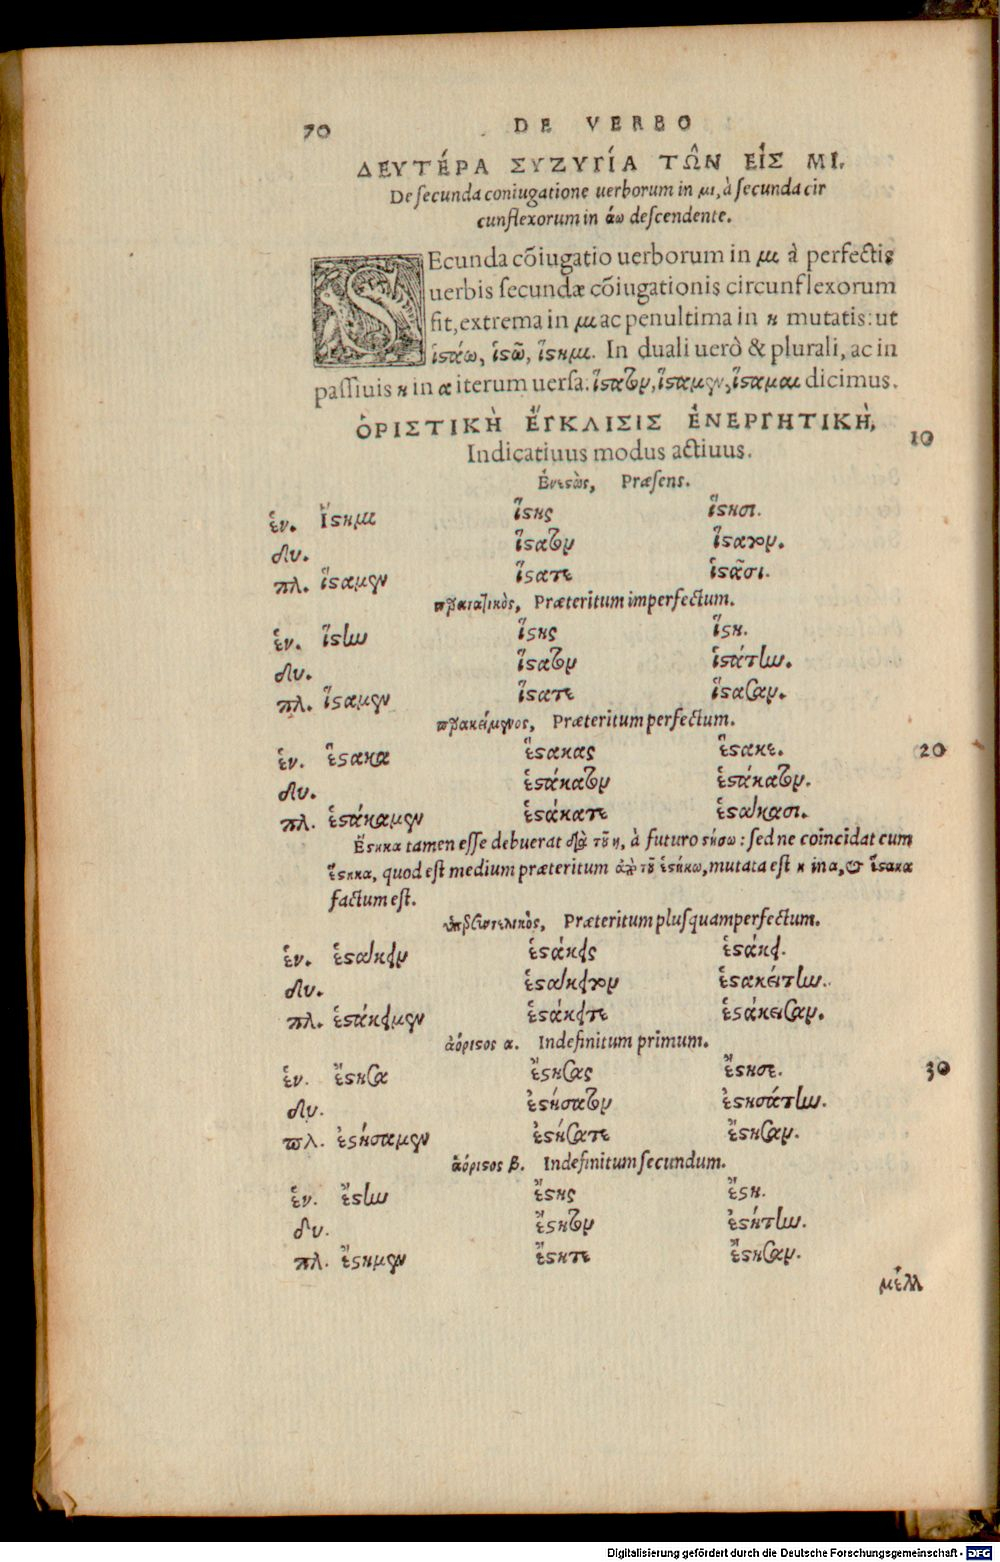 70 DE VERBO
ΔΕΥΤΈΡΑ ΣΥΖΥΓΊΑ ΤΩ͂Ν ΕἸΣ ΜΙ.
De secunda coniugatione uerborum in μι, à secunda cir
cunflexorum in άω descendente.
SEcunda cōiugatio uerborum in μι à perfectis
uerbis secundæ cōiugationis circunflexorum
fit, extrema in μι ac penultima in η mutatis: ut
ἱστάω, ἱστῶ, ἵστημι. In duali uerò & plurali, ac in
passiuis η in α iterum uersa: ἵστατον, ἵσταμεν, ἵσταμαι dicimus.
ὉΡΙΣΤΙΚῊ ἜΓΚΛΙΣΙΣ ἘΝΕΡΓΗΤΙΚῊ, 10
Indicatiuus modus actiuus.
Ἐνεστὼς, Præsens.
ἑν. Ἵστημι ἵστης ἵστησι.
δυ. ἵστατον ἵστατον.
πλ. ἵσταμεν ἵστατε ἱστᾶσι.
παρατατικὸς, Præteritum imperfectum.
ἑν. ἵστην ἵστης ἵστη.
δυ. ἵστατον ἱστάτην.
πλ. ἵσταμεν ἵστατε ἵστασαν.
παρακείμενος, Præteritum perfectum.
ἑν. ἕστακα ἕστακας ἕστακε. 20
δυ. ἑστάκατον ἑστάκατον.
πλ. ἑστάκαμεν ἑστάκατε ἑστάκασι.
Ἕστηκα tamen esse debuerat διὰ τοῦ η, à futuro στήσω: sed ne coincidat cum
ἕστηκα, quod est medium præteritum ἀπὸ τοῦ ἑστήκω, mutata est η in α, & ἕστακα
factum est.
ὑπερσυντελικὸς, Præteritum plusquamperfectum.
ἑν. ἑστάκειν ἑστάκεις ἑστάκει.
δυ. ἑστάκειτον ἑστακείτην.
πλ. ἑστάκειμεν ἑστάκειτε ἑστάκεισαν.
ἀόριστος α. Indefinitum primum.
ἑν. ἔστησα ἔστησας ἔστησε. 30
δυ. ἐστήσατον ἐστησάτην.
πλ. ἐστήσαμεν ἐστήσατε ἔστησαν.
ἀόριστος β. Indefinitum secundum.
ἑν. ἔστην ἔστης ἔστη.
δυ. ἔστητον ἐστήτην.
πλ. ἔστημεν ἔστητε ἔστησαν.
μέλλ
Digitalisierung gefördert durch die Deutsche Forschungsgemeinschaft - DFG